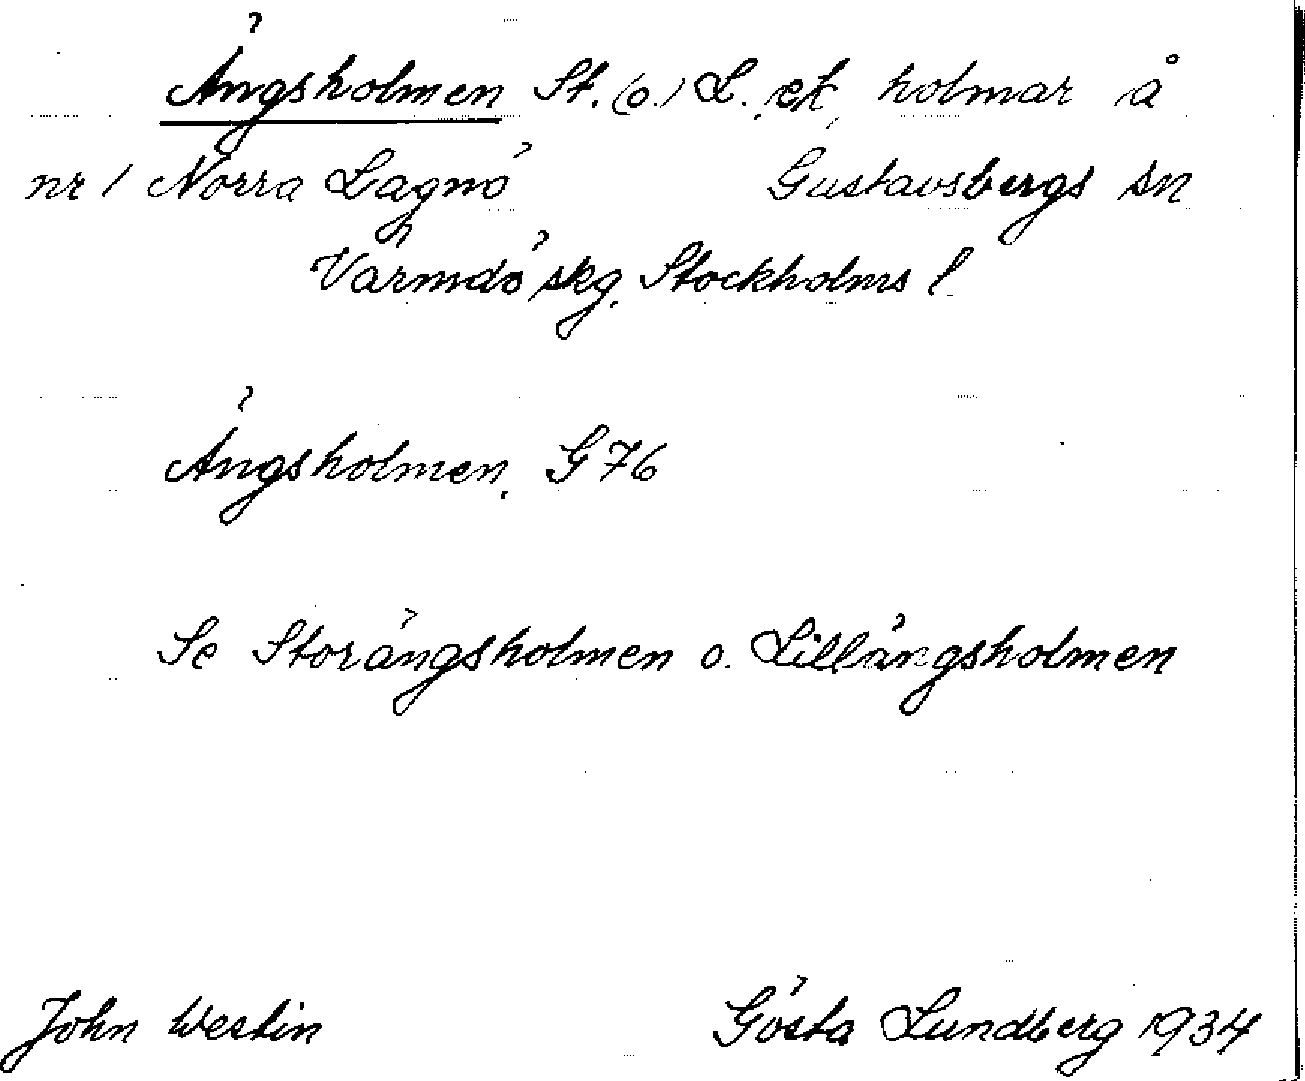 Ängsholmen St. (o.) L. ek. holmar å
nr 1 Norra Lagnö Gustavsbergs sn
Värmdö skg. Stockholms l
Ängsholmen. G 76
Se Storängsholmen o. Lillängsholmen
John Westin Gösta Lundberg 1934